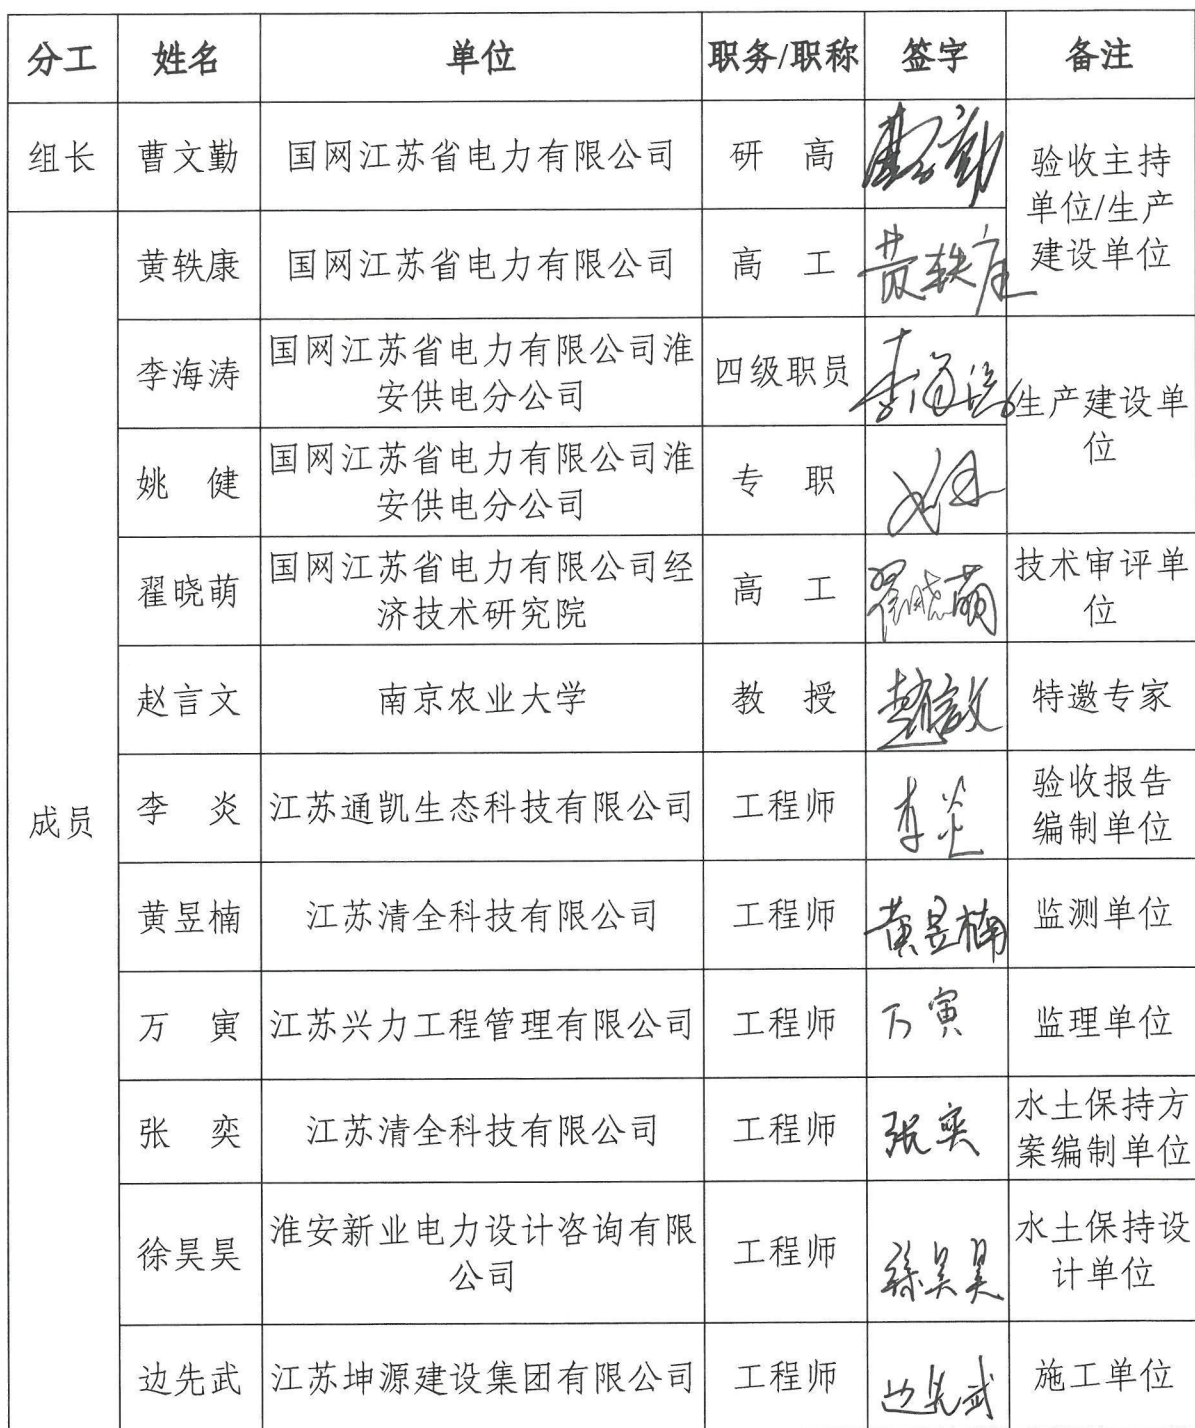 分工 姓名 单位 职务/职称 签字 备注
组长 曹文勤 国网江苏省电力有限公司 研 高 曹文勤 验收主持
单位/生产
建设单位
成员 黄轶康 国网江苏省电力有限公司 高 工 黄轶康
李海涛 国网江苏省电力有限公司淮
安供电分公司 四级职员 李海涛 生产建设单
位
姚 健 国网江苏省电力有限公司淮
安供电分公司 专 职 姚健
翟晓萌 国网江苏省电力有限公司经
济技术研究院 高 工 翟晓萌 技术审评单
位
赵言文 南京农业大学 教 授 赵言文 特邀专家
李 炎 江苏通凯生态科技有限公司 工程师 李炎 验收报告
编制单位
黄昱楠 江苏清全科技有限公司 工程师 黄昱楠 监测单位
万 寅 江苏兴力工程管理有限公司 工程师 万寅 监理单位
张 奕 江苏清全科技有限公司 工程师 张奕 水土保持方
案编制单位
徐昊昊 淮安新业电力设计咨询有限
公司 工程师 徐昊昊 水土保持设
计单位
边先武 江苏坤源建设集团有限公司 工程师 边先武 施工单位